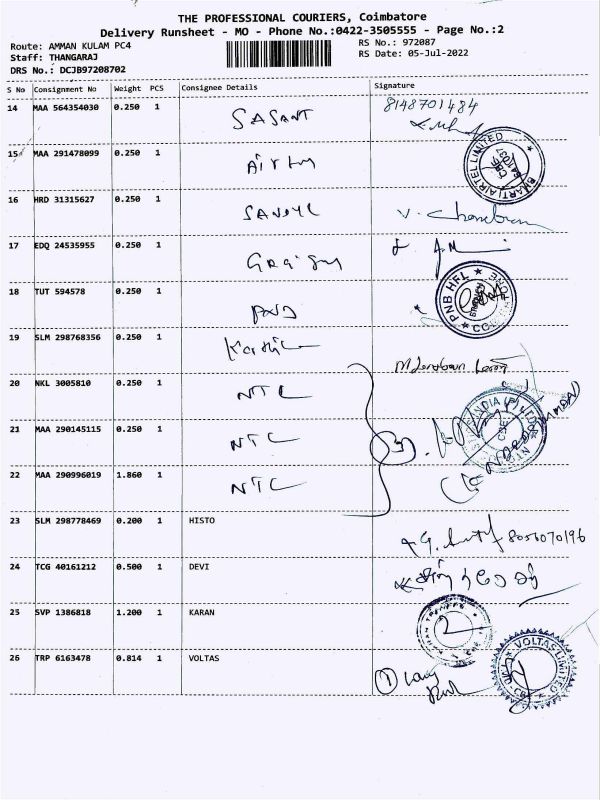 THE PROFESSIONAL COURIERS, Coimbatore
Delivery Runsheet - MO - Phone No.:0422-3505555 - Page No.:2
Route: AMMAN KULAM PC4 RS No.: 972087
Staff: THANGARAJ RS Date: 05-Jul-2022
DRS No.: DCJB97208702
S No Consignment No Weight PCS Consignee Details Signature
14 MAA 564354030 0.250 1 SASANT 8148701484
15 MAA 291478099 0.250 1 Airtel BHARTI AIRTEL LIMITED
16 HRD 31315627 0.250 1
17 EDQ 24535955 0.250 1
18 TUT 594578 0.250 1 PNB PNB HFL
19 SLM 298768356 0.250 1
20 NKL 3005810 0.250 1 NTC
21 MAA 290145115 0.250 1 NTC
22 MAA 290996019 1.860 1 NTC
23 SLM 298778469 0.200 1 HISTO 8056070196
24 TCG 40161212 0.500 1 DEVI
25 SVP 1386818 1.200 1 KARAN
26 TRP 6163478 0.814 1 VOLTAS VOLTAS LIMITED